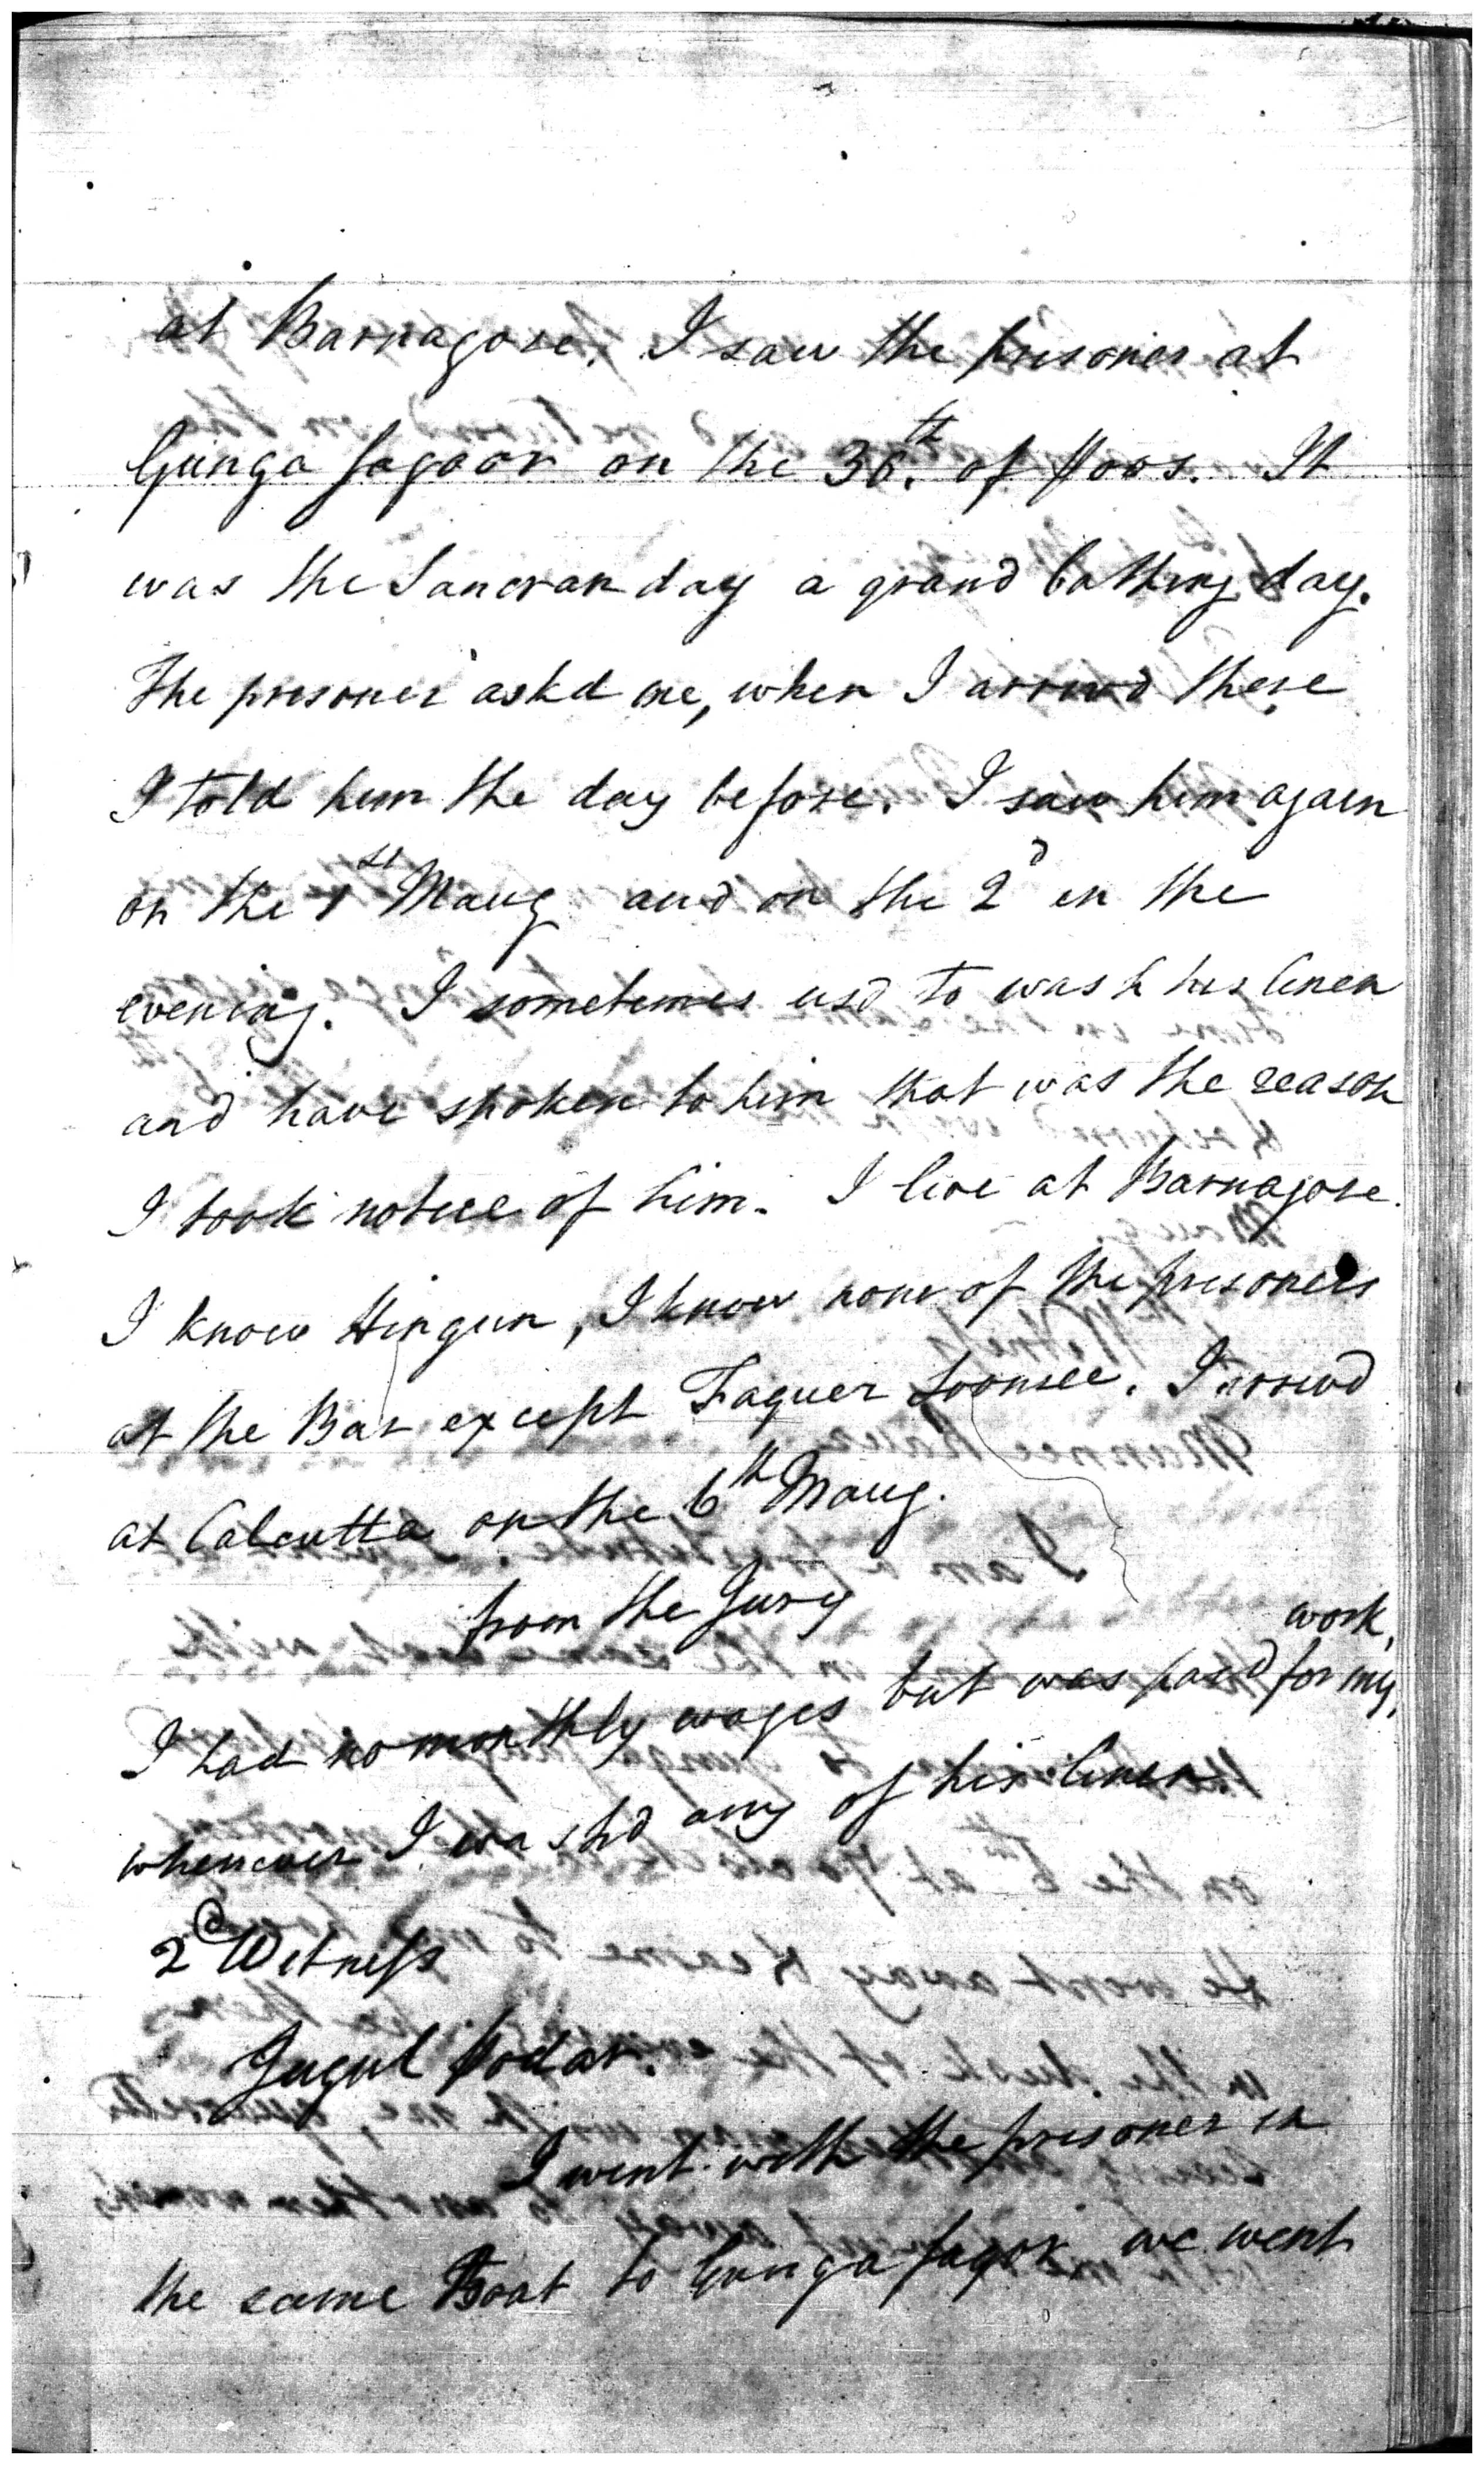 at Barnagore. I saw the prisoner at
Gunga Sagoor on the 30.th of Poos. It
was the Sancran day a grand bathing day.
The prisoner askd me, when I arrivd there
I told him the day before. I saw him again
on the 1st Maug and on the 2d in the
evening. I sometimes usd to wash his linen
and have spoken to him that was the reason
I took notice of him. I live at Barnagore.
I know Hingun, I know none of the prisoners
at the Bar except Faquer Soonsee. I arrivd
at Calcutta on the 6th Maug.
from the Jury
I had no monthly wages but was paid for my work,
whenever I washd any of his linen.
2d Witness
Jugul Podar.
I went with the prisoner in
the same Boat to Gunga Sagor we went